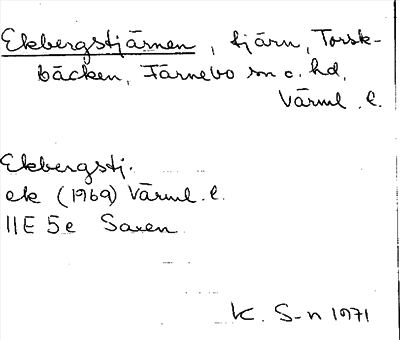 Ekbergstjärnen, tjärn, Torsk-
bäcken, Färnebo sn o. hd,
Värml. l.
Ekbergstj.
ek (1969) Värml. l.
11E 5e Saxen
K. S-n 1971